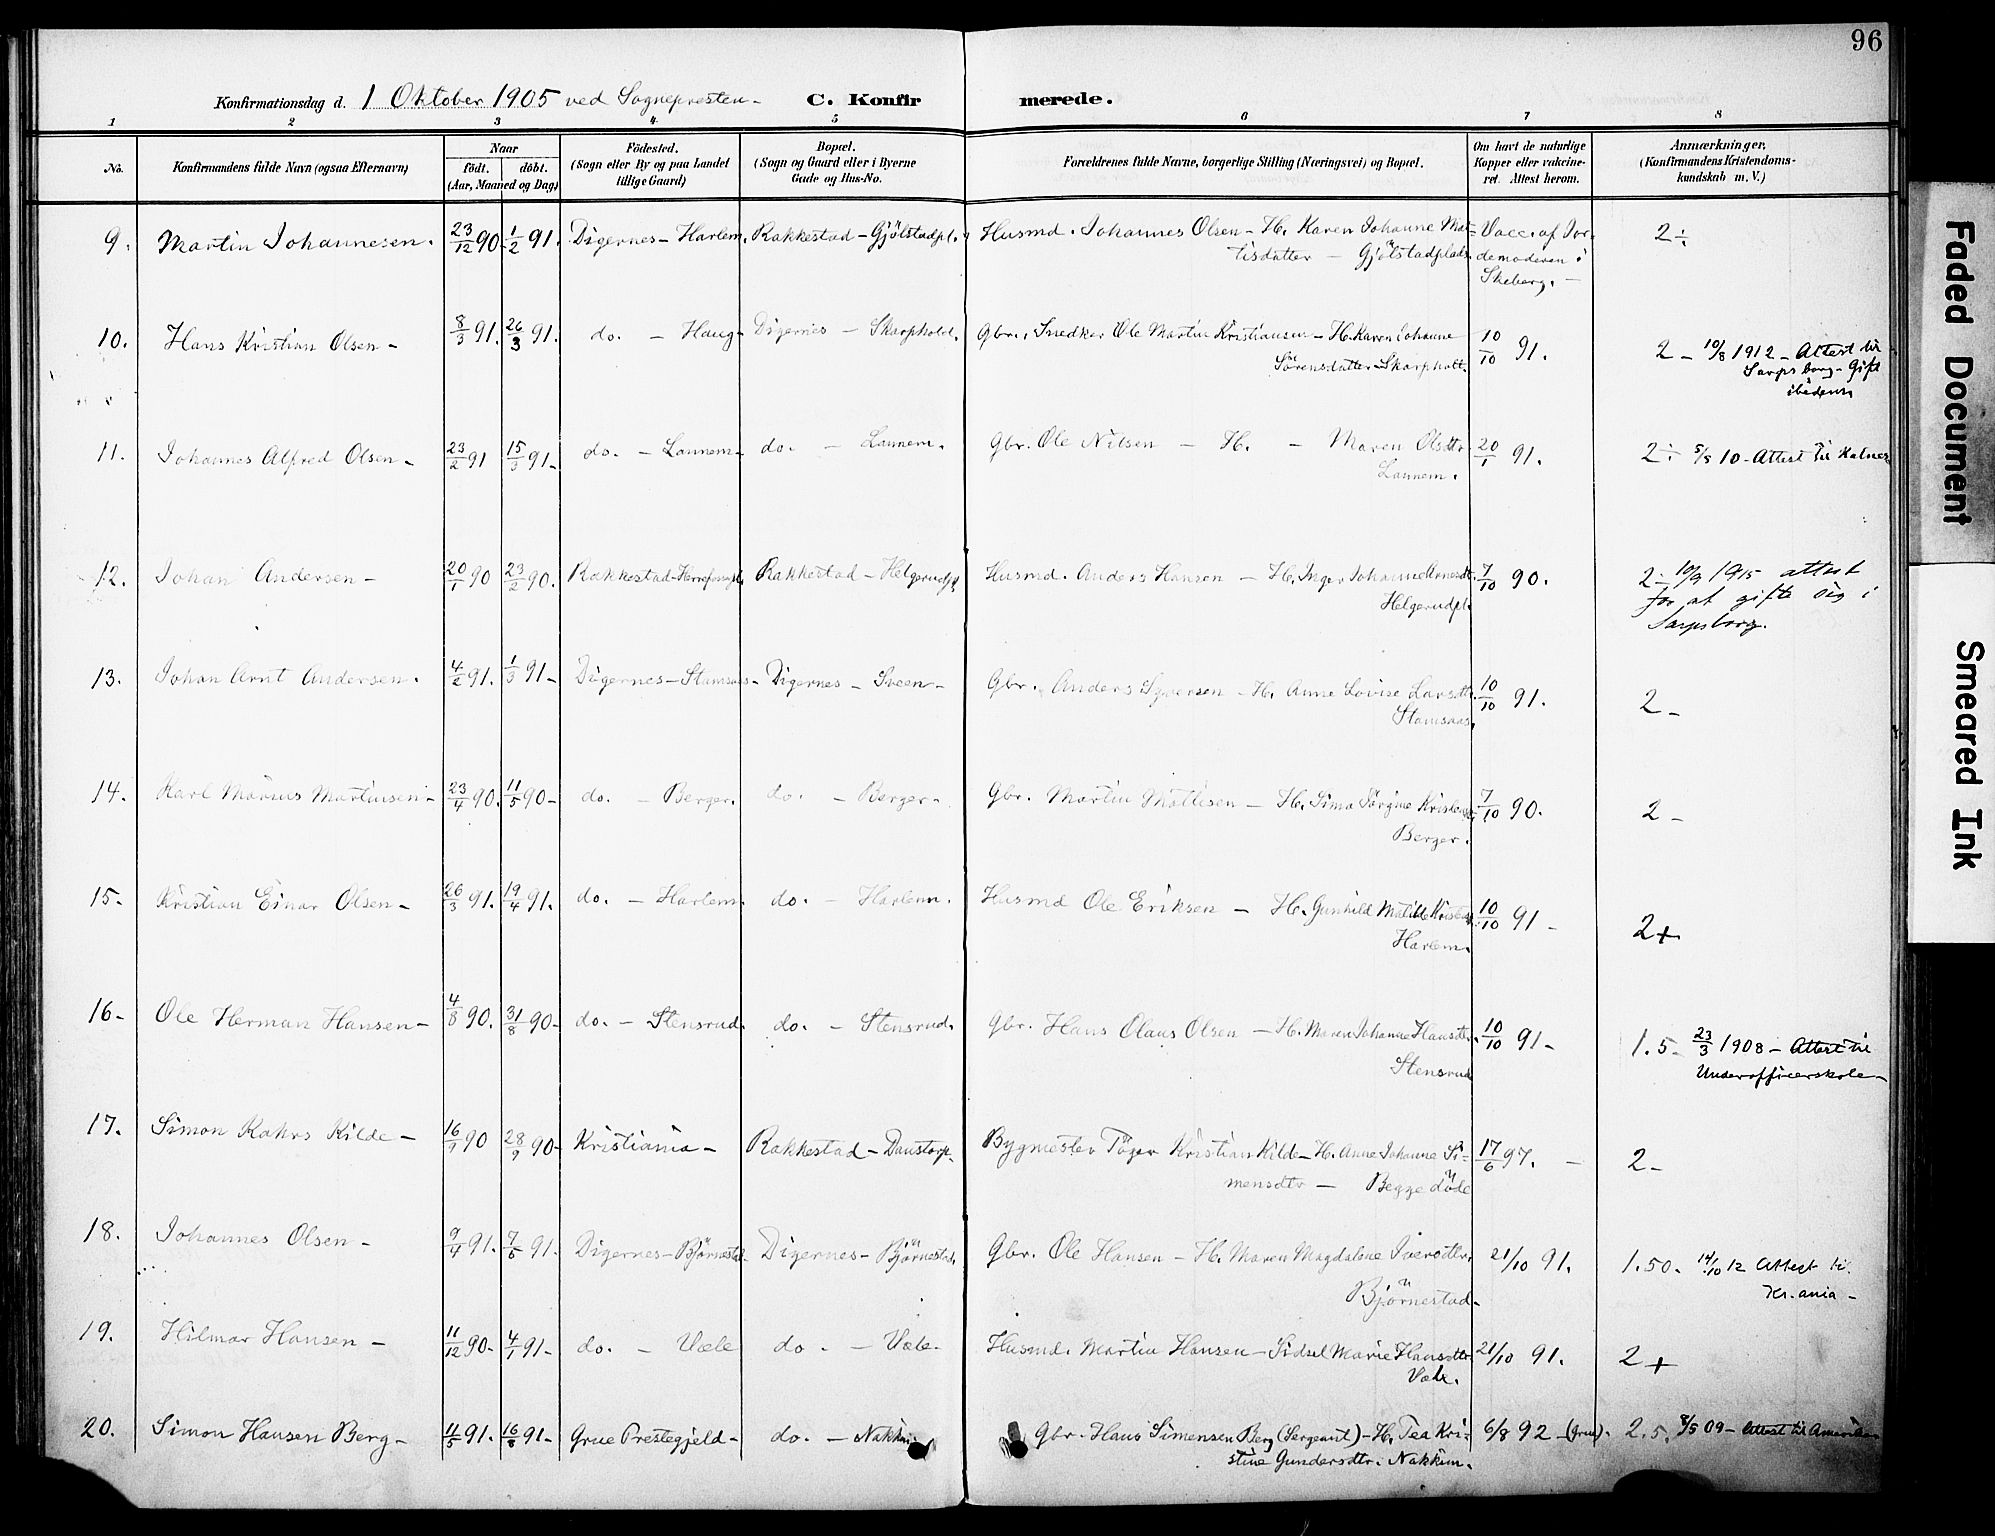 96
Konfirmationsdag d. 1 Oktober 1905 ved Sognepresten - C. Konfirmerede.
1 2 3 4. 5 6 7 8
No. Konfirmandens fulde Navn (ogsaa Efternavn) Naar født. døbt. (Aar, Maaned og Dag) Fødested. (Sogn eller By og paa Landet tillige Gaard) Bopæl. (Sogn og Gaard eller i Byerne Gade og Hus-No. Forældrenes fulde Navne, borgerlige Stilling (Næringsvei) og Bopæl. Om havt de naturlige Kopper eller vakcineret. Attest herom. Anmærkninger, (Konfirmandens Kristendomskundskab m. V.)
9. Martin Johannesen. 23/12 90. 1/2 91. Digernes - Harlem. Rakkestad - Gjølstadpl. Husmd. Johannes Olsen - H. Karen Johanne Mat- Vacc. af Jor- 2 ÷
tisdatter - Gjølstadplads. demoderen i
Skeberg. -
10. Hans Kristian Olsen - 8/3 91. 26/3 91. do. - Haug - Digernes - Skarpholt. Gbr., Snedker Ole Martin Kristiansen - H. Karen Johanne 10/10 91. 2 - 10/8 1912 - Attest til
Sörensdatter - Skarpholt. Sarpsborg - Gift
11. Johannes Alfred Olsen - 23/2 91 15/3 91 - do. - Lannem - do. - Lannem. Gbr. Ole Nilsen - H. - Maren Olsdtr. 20/1 91. 2 ÷ 5/5 10 - Attest til
Lannem.
12. Johan Andersen - 20/1 90 23/2 90. Rakkestad - Rakkestad - Helgerudpl. Husmd. Anders Hansen - H. Inger Johanne 7/10 90. 2 ÷ 10/9 1915 attest
Helgerudpl. for at gifte sig i
Sarpsborg.
13. Johan Arnt Andersen. 4/2 91. 1/3 91 - Digernes - Stamsaas - Digernes - Sveen - Gbr. Anders Syversen - H. Anne Lovise Larsdtr. 10/10 91. 2 -
Stamsaas,
14. Karl Marius Martinsen - 23/4 90. 11/5 90 - do. - Berger. do. - Berger. Gbr. Martin Mattisen - H. Sima Jörgine 7/10 90. 2 -
Berger.
15. Kristian Einar Olsen - 26/3 91. 19/4 91. do. - Harlem. do. - Harlem. Husmd Ole Eriksen - H. Gunhild Matilde 10/10 91 - 2 +
Harlem.
16 - Ole Herman Hansen - 4/8 90. 31/8 90 - do. - Stensrud. do. - Stensrud. Gbr. Hans Olaus Olsen - H. Maren Johanne Hansdtr. 10/10 91 - 1.5 - 23/3 1908 - Attest til
Stensrud Underofficerskole -
17. Simon Kahrs Kilde - 16/9 90 28/9 90 - Kristiania - Rakkestad - Daustorp - Bygmester Töger Kristian Kilde - H. Anne Johanne Si- 17/6 97. - 2 -
mensdtr - Begge döde
18. Johannes Olsen - 9/4 91. 7/6 91. Digernes - Björnestad. Digernes - Björnestad. Gbr. Ole Hansen - H. Maren Magdalene Iversdtr. 21/10 91. 1.50. 14/10 12 Attest til
Björnestad. Kr.ania -
19. Hilmar Hansen - 11/12 90 - 4/1 91 - do. - Væle do. - Væle - Husmd. Martin Hansen - Sidsel Marie Hansdtr. 21/10 91. 2 +
Væle.
20. Simon Hansen Berg - 11/5 91. 16/8 91 - Grue Prestegjeld - do. - Nakkim Gbr. Hans Simensen Berg (Sergeant) - H. Tea Kri- 6/8 92 - (Grue). 2.5. 8/5 09 - Attest til Amerika
stine Gundersdtr. Nakkim.
Faded Document
Smeared Ink